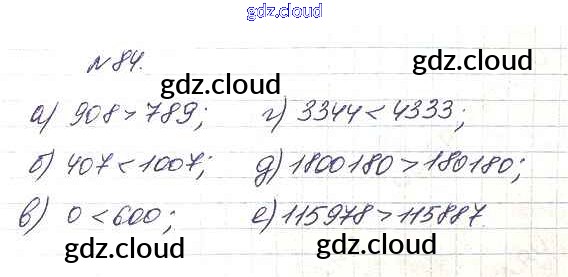 gdz.cloud
№ 84.
gdz.cloud gdz.cloud
а) 908 > 789; г) 3344 < 4333;
б) 407 < 1007; д) 1800180 > 180180;
в) 0 < 600; е) 115978 > 115887.
gdz.cloud gdz.cloud